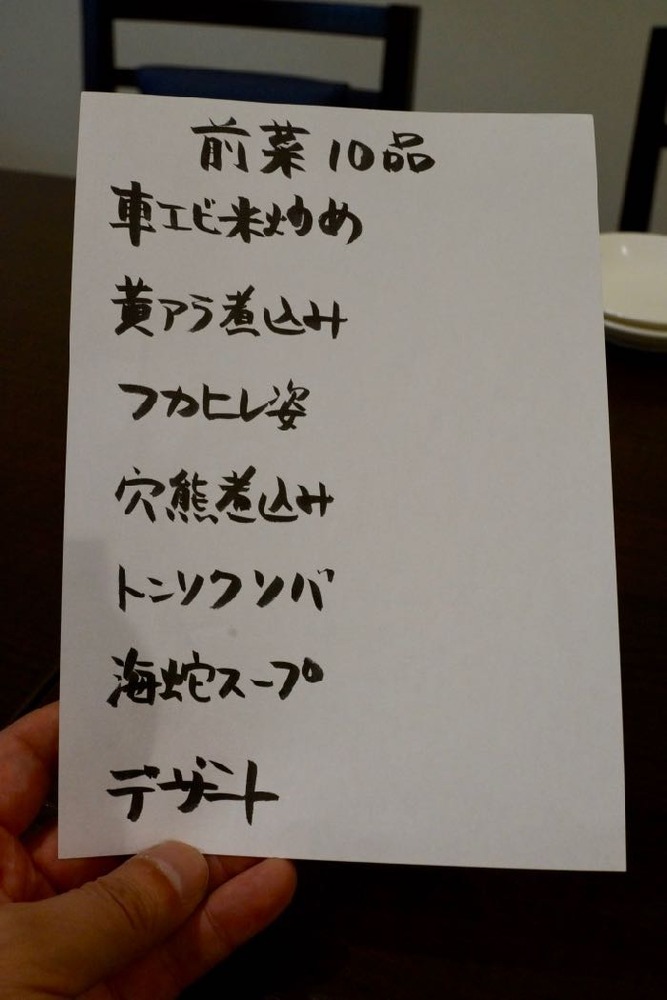 前菜10品
車エビ米炒め
黄アラ煮込み
フカヒレ姿
穴熊煮込み
トンソクソバ
海蛇スープ
デザート